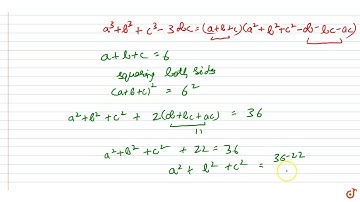 a³+b³+c³-3abc=(a+b+c)(a²+b²+c²-ab-bc-ac)
a+b+c=6
squaring both sides
(a+b+c)² = 6²
a²+b²+c² + 2(ab+bc+ac) = 36
11
a²+b²+c² + 22 = 36
a² + b² + c² = 36-22